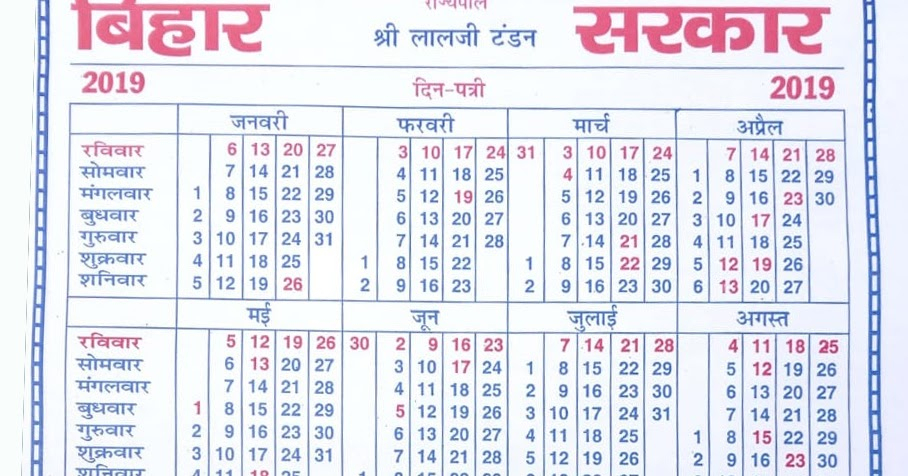 राज्यपाल
बिहार श्री लालजी टंडन सरकार
2019 दिन-पत्री 2019
जनवरी फरवरी मार्च अप्रैल
रविवार 6 13 20 27 3 10 17 24 31 3 10 17 24 7 14 21 28
सोमवार 7 14 21 28 4 11 18 25 4 11 18 25 1 8 15 22 29
मंगलवार 1 8 15 22 29 5 12 19 26 5 12 19 26 2 9 16 23 30
बुधवार 2 9 16 23 30 6 13 20 27 6 13 20 27 3 10 17 24
गुरुवार 3 10 17 24 31 7 14 21 28 7 14 21 28 4 11 18 25
शुक्रवार 4 11 18 25 1 8 15 22 1 8 15 22 29 5 12 19 26
शनिवार 5 12 19 26 2 9 16 23 2 9 16 23 30 6 13 20 27
मई जून जुलाई अगस्त
रविवार 5 12 19 26 30 2 9 16 23 7 14 21 28 4 11 18 25
सोमवार 6 13 20 27 3 10 17 24 1 8 15 22 29 5 12 19 26
मंगलवार 7 14 21 28 4 11 18 25 2 9 16 23 30 6 13 20 27
बुधवार 1 8 15 22 29 5 12 19 26 3 10 17 24 31 7 14 21 28
गुरुवार 2 9 16 23 30 6 13 20 27 4 11 18 25 1 8 15 22 29
शुक्रवार 3 10 17 24 31 7 14 21 28 5 12 19 26 2 9 16 23 30
शनिवार 4 11 18 25